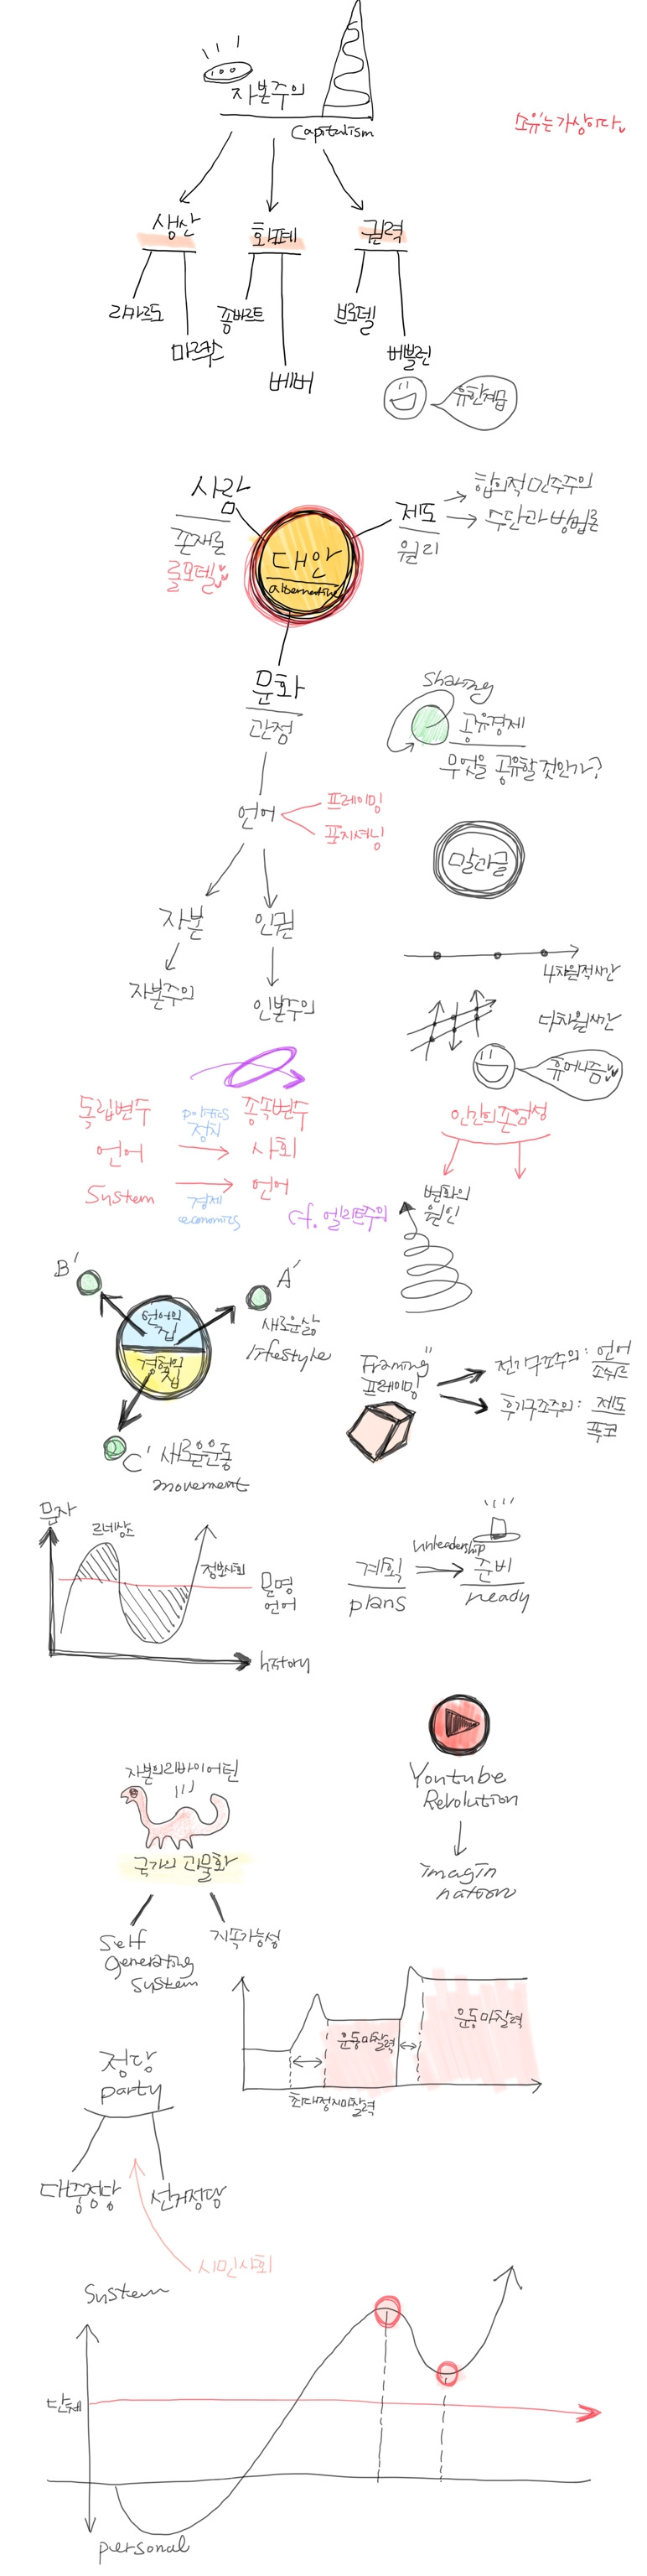 자본주의
Capitalism
소유는 가상이다
생산
화폐
권력
리카르도
마르크스
좀바르트
베버
브로델
베블린
유한계급
사람
존재론
롤모델
대안
alternative
제도
원리
합의적 민주주의
수단과 방법론
문화
관점
sharing
공유경제
무엇을 공유할 것인가?
언어
프레이밍
포지셔닝
말과글
자본
인권
자본주의
인본주의
4차원적시간
다차원시간
휴머니즘
독립변수
politics
정치
종속변수
언어
사회
System
경제
economics
언어
인간의존엄성
변화의
원인
cf. 엘리트주의
B'
A'
언어의
집
경험의
집
새로운삶
lifestyle
C' 새로운운동
movement
Framing
프레이밍
전기구조주의: 언어
소쉬르
후기구조주의: 제도
푸코
문자
르네상스
정보사회
문명
언어
history
계획
plans
unleadership
준비
ready
Youtube
Revolution
imagin
nation
자본의리바이어턴
국가의 괴물화
Self
generating
System
지속가능성
운동마찰력
운동마찰력
최대정지마찰력
정당
party
대중정당
선거정당
시민사회
System
단체
personal